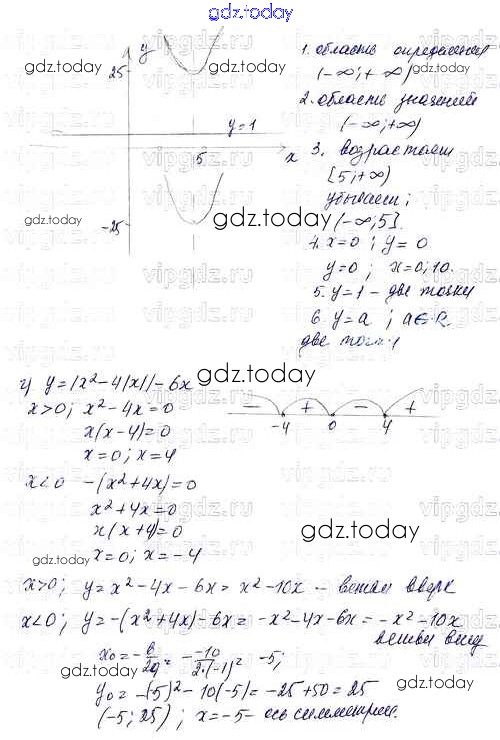 gdz.today
y
25
gdz.today
gdz.today
1. область определения
(-∞;+∞)
2. область значений
(-∞;+∞)
y=1
5
x
3. возрастает
[5;+∞)
убывает;
(-∞;5].
gdz.today
gdz.today
-25
4. x=0; y=0
y=0; x=0;10.
5. y=1 - две точки
6. y=a; a∈R
две точки
gdz.today
г) y=|x²-4|x||-6x
x>0; x²-4x=0
x(x-4)=0
x=0; x=4
- + - +
-4 0 4
x<0 -(x²+4x)=0
x²+4x=0
x(x+4)=0
x=0; x=-4
gdz.today
gdz.today
x>0; y=x²-4x-6x=x²-10x - ветви вверх
x<0; y=-(x²+4x)-6x=-x²-4x-6x=-x²-10x
ветви вниз
x₀=-b/2a=-(-10)/2·(-1)=-5;
y₀=-(-5)²-10(-5)=-25+50=25
(-5;25); x=-5- ось симметрии.
gdz.today
gdz.today
gdz.today